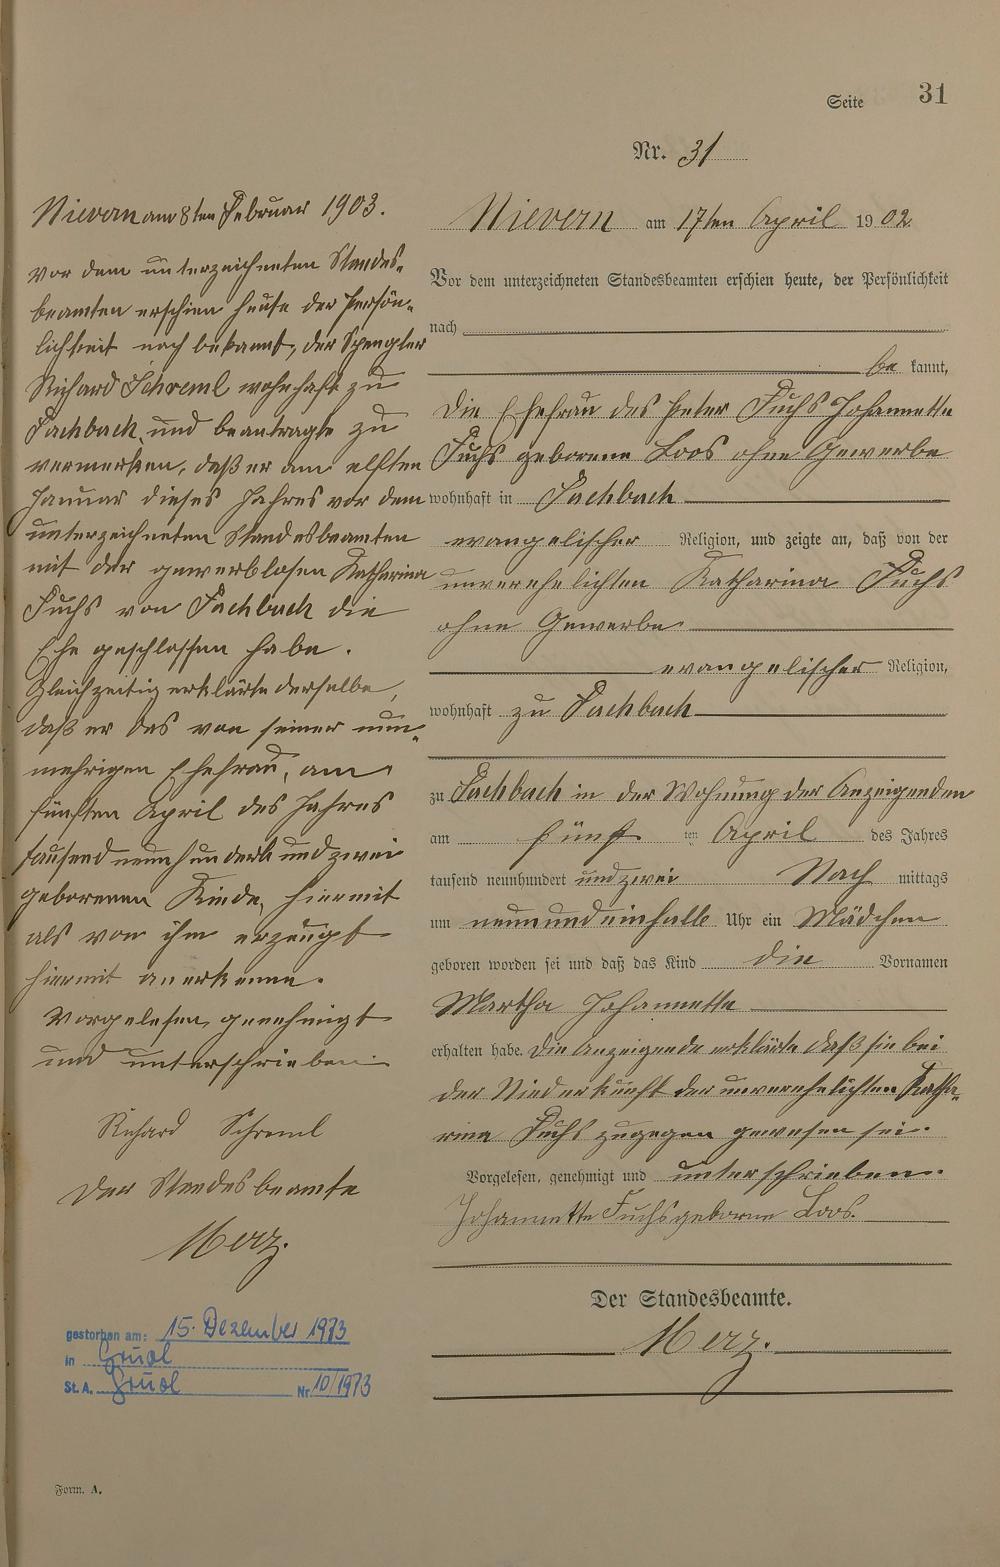 Seite 31
Nr. 31
Nievern am 8ten Februar 1903.
Vor dem unterzeichneten Standes-
beamten erschien heute der Persön-
lichkeit nach bekannt, der Spengler
Richard Schreml wohnhaft zu
Fachbach und beantragte zu
vermerken, daß er am elften
Januar dieses Jahres vor dem
unterzeichneten Standesbeamten
mit der gewerblosen Katharina
Fuchs von Fachbach die
Ehe geschlossen habe.
Gleichzeitig erklärte derselbe,
daß er das von seiner nun-
mehrigen Ehefrau, am
fünften April des Jahres
tausend neunhundert und zwei
geborenen Kinde, hiermit
als von ihm erzeugt
hiermit anerkenne.
Vorgelesen, genehmigt
und unterschrieben
Richard Schreml
Der Standesbeamte
Merz.
gestorben am: 15. Dezember 1973
in
St. A. Nr 10/1973
Form. A.
Nievern am 17ten April 1902
Vor dem unterzeichneten Standesbeamten erschien heute, der Persönlichkeit
nach
be kannt,
die Ehefrau des Peter Fuchs Johannette
Fuchs geborene Loos ohne Gewerbe
wohnhaft in Fachbach
evangelischer Religion, und zeigte an, daß von der
unverehelichten Katharina Fuchs
ohne Gewerbe
evangelischer Religion,
wohnhaft zu Fachbach
zu Fachbach in der Wohnung der Anzeigenden
am fünf ten April des Jahres
tausend neunhundert und zwei Nach mittags
um neun und einhalb Uhr ein Mädchen
geboren worden sei und daß das Kind die Vornamen
Martha Johannette
erhalten habe. Die Anzeigende erklärte daß sie bei
der Niederkunft der unverehelichten Katha-
rina Fuchs zugegen gewesen sei.
Vorgelesen, genehmigt und unterschrieben.
Johannette Fuchs geborne Loos.
Der Standesbeamte.
Merz.